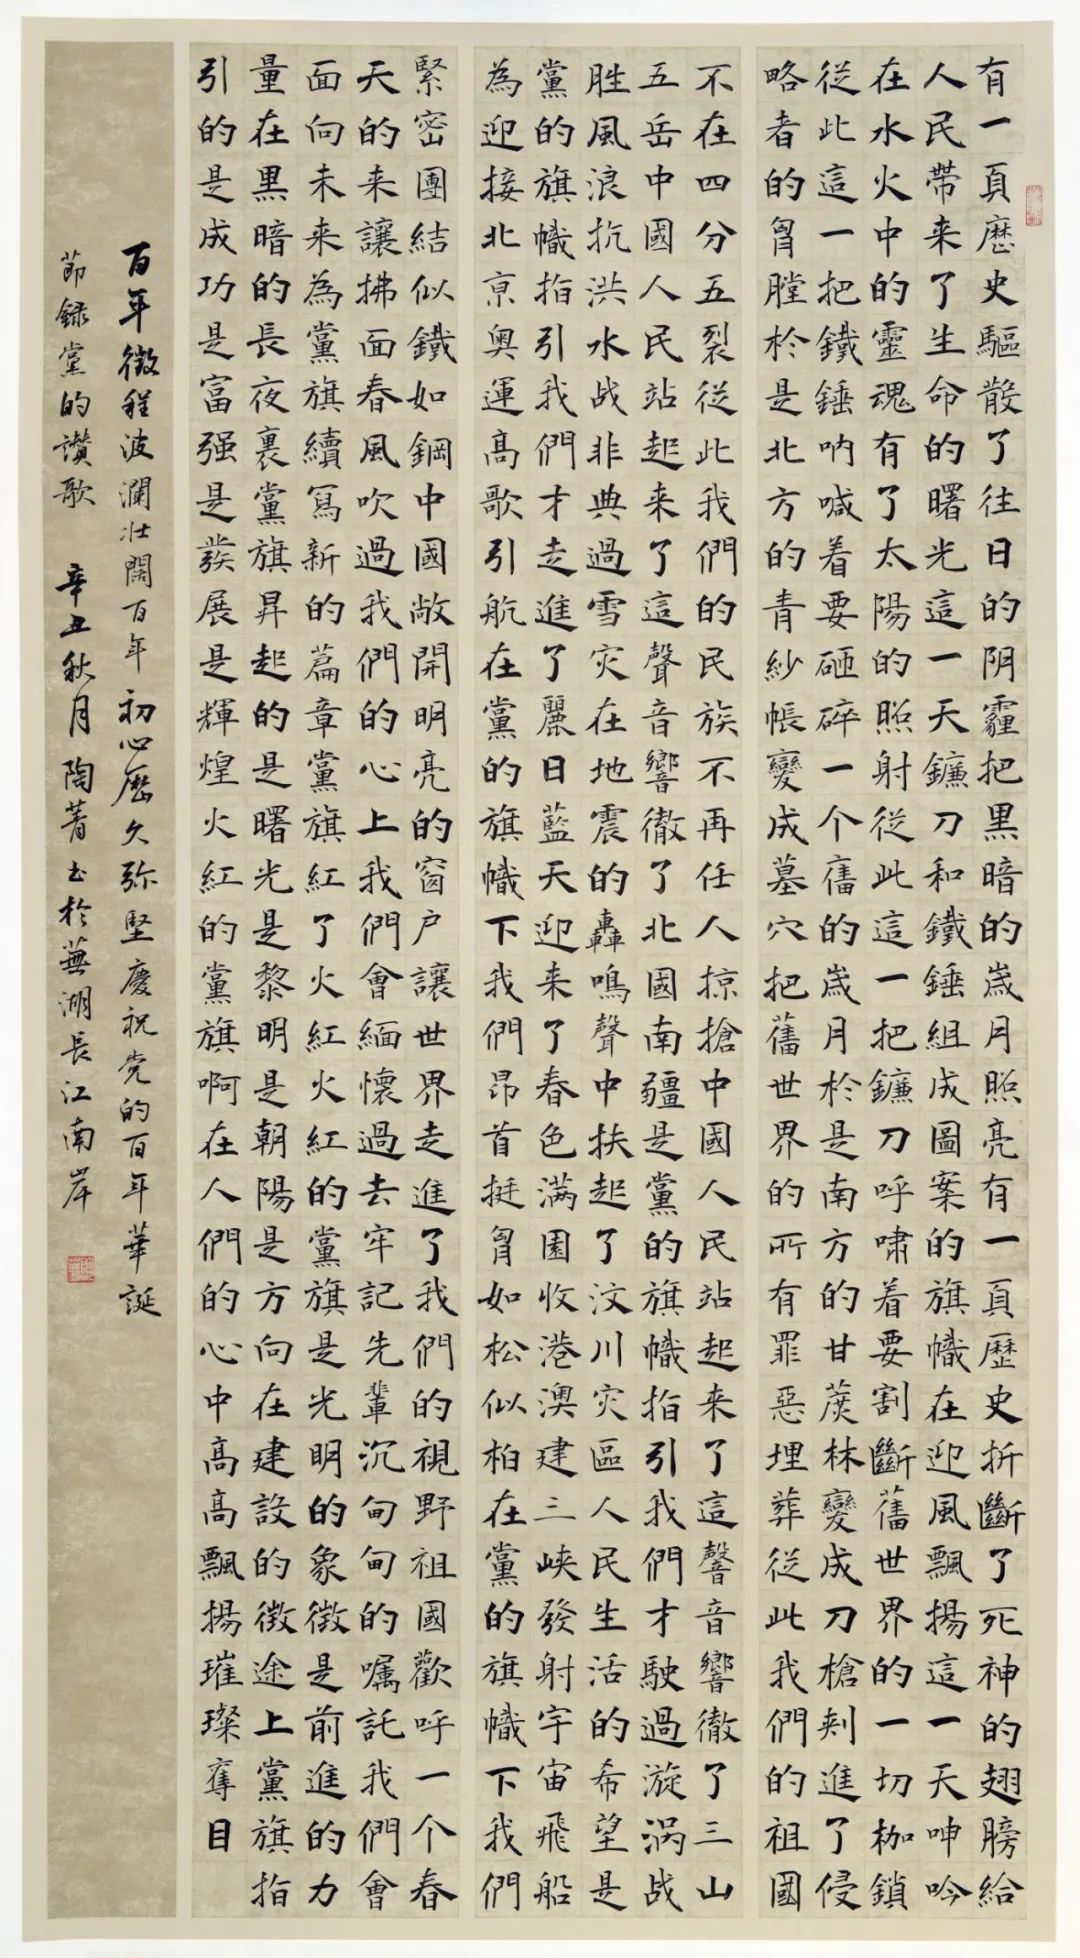 有一頁歷史驅散了往日的阴霾把黑暗的歲月照亮有一頁歷史折斷了死神的翅膀給
人民帶来了生命的曙光這一天鐮刀和鐵錘組成圖案的旗幟在迎風飄揚這一天呻吟
在水火中的靈魂有了太陽的照射從此這一把鐮刀呼啸着要割斷舊世界的一切枷鎖
從此這一把鐵錘呐喊着要砸碎一个舊的歲月於是南方的甘蔗林變成刀槍刺進了侵
略者的胷膛於是北方的青紗帳變成墓穴把舊世界的所有罪惡埋葬從此我們的祖國
不在四分五裂從此我們的民族不再任人掠搶中國人民站起来了這聲音響徹了三山
五岳中國人民站起来了這聲音響徹了北國南疆是黨的旗幟指引我們才駛過漩涡战
胜風浪抗洪水战非典過雪灾在地震的轟鳴聲中扶起了汶川灾區人民生活的希望是
黨的旗幟指引我們才走進了麗日藍天迎来了春色满園收港澳建三峡發射宇宙飛船
為迎接北京奥運高歌引航在黨的旗幟下我們昂首挺胷如松似柏在黨的旗幟下我們
緊密團結似鐵如鋼中國敞開明亮的窗户讓世界走進了我們的視野祖國歡呼一个春
天的来讓拂面春風吹過我們的心上我們會緬懷過去牢記先輩沉甸甸的嘱託我們會
面向未来為黨旗續寫新的篇章黨旗紅了火紅火紅的黨旗是光明的象徵是前進的力
量在黑暗的長夜裏黨旗昇起的是曙光是黎明是朝陽是方向在建設的徵途上黨旗指
引的是成功是富强是發展是輝煌火紅的黨旗啊在人們的心中高高飄揚璀璨奪目
百年徵程波瀾壮闊百年初心歷久弥堅慶祝党的百年華誕
節録党的讚歌 辛丑秋月陶菁书於蕪湖長江南岸